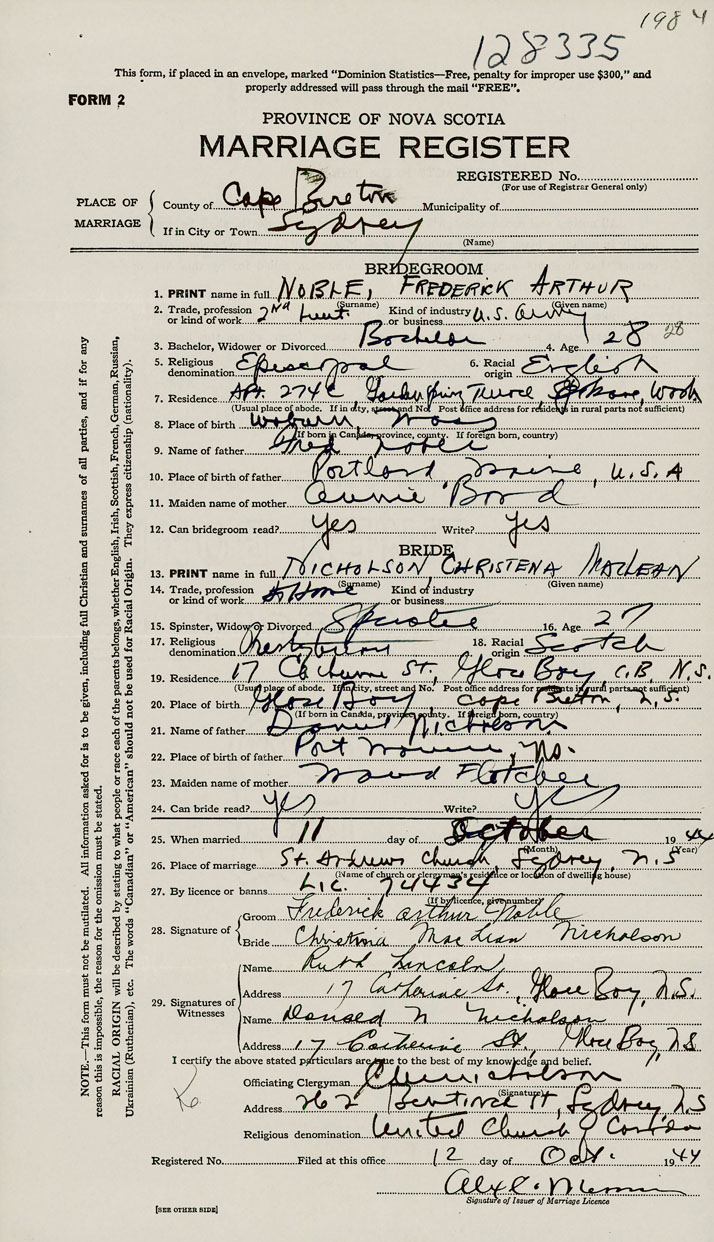 1984
128335
This form, if placed in an envelope, marked "Dominion Statistics—Free, penalty for improper use $300," and
properly addressed will pass through the mail "FREE".
FORM 2
PROVINCE OF NOVA SCOTIA
MARRIAGE REGISTER
REGISTERED No.
(For use of Registrar General only)
PLACE OF MARRIAGE
County of Cape Breton Municipality of
If in City or Town Sydney
(Name)
BRIDEGROOM
1. PRINT name in full NOBLE, FREDERICK ARTHUR
(Surname) (Given name)
2. Trade, profession or kind of work 2nd Lieut. Kind of industry or business U.S. Army
3. Bachelor, Widower or Divorced Bachelor 4. Age 28 28
5. Religious denomination Episcopal 6. Racial origin English
7. Residence Apt. 274C, Spokane, Wash
(Usual place of abode. If in city, street and No. Post office address for residents in rural parts not sufficient)
8. Place of birth Woburn, Mass
(If born in Canada, province, county. If foreign born, country)
9. Name of father Fred Noble
10. Place of birth of father Portland, Maine, U.S.A
11. Maiden name of mother Annie Bond
12. Can bridegroom read? yes Write? yes
BRIDE
13. PRINT name in full NICHOLSON, CHRISTENA MACLEAN
(Surname) (Given name)
14. Trade, profession or kind of work At Home Kind of industry or business
15. Spinster, Widow or Divorced Spinster 16. Age 27
17. Religious denomination Presbyterian 18. Racial origin Scotch
19. Residence 17 Catherine St., Glace Bay, C.B. N.S.
(Usual place of abode. If in city, street and No. Post office address for residents in rural parts not sufficient)
20. Place of birth Glace Bay, Cape Breton, N.S.
(If born in Canada, province, county. If foreign born, country)
21. Name of father Daniel Nicholson
22. Place of birth of father Port Morien, NS.
23. Maiden name of mother Maud Fletcher
24. Can bride read? yes Write? yes
25. When married 11 day of October 1944
(Month) (Year)
26. Place of marriage St. Andrews Church, Sydney, N.S
(Name of church or clergyman's residence or location of dwelling house)
27. By licence or banns Lic. 74434
(If by licence, give number)
28. Signature of Groom Frederick Arthur Noble
Bride Christina MacLean Nicholson
29. Signatures of Witnesses
Name Ruth Lincoln
Address 17 Catherine St., Glace Bay, N.S.
Name Donald N Nicholson
Address 17 Catherine St., Glace Bay, N.S
I certify the above stated particulars are true to the best of my knowledge and belief.
Officiating Clergyman Nicholson
(Signature)
Address 262 Bentinck St, Sydney N.S
Religious denomination United Church of Canada
Registered No. Filed at this office 12 day of Oct. 1944
Signature of Issuer of Marriage Licence
[SEE OTHER SIDE]
NOTE.—This form must not be mutilated. All information asked for is to be given, including full Christian and surnames of all parties, and if for any
reason this is impossible, the reason for the omission must be stated.
RACIAL ORIGIN will be described by stating to what people or race each of the parents belongs, whether English, Irish, Scottish, French, German, Russian,
Ukrainian (Ruthenian), etc. The words "Canadian" or "American" should not be used for Racial Origin. They express citizenship (nationality).